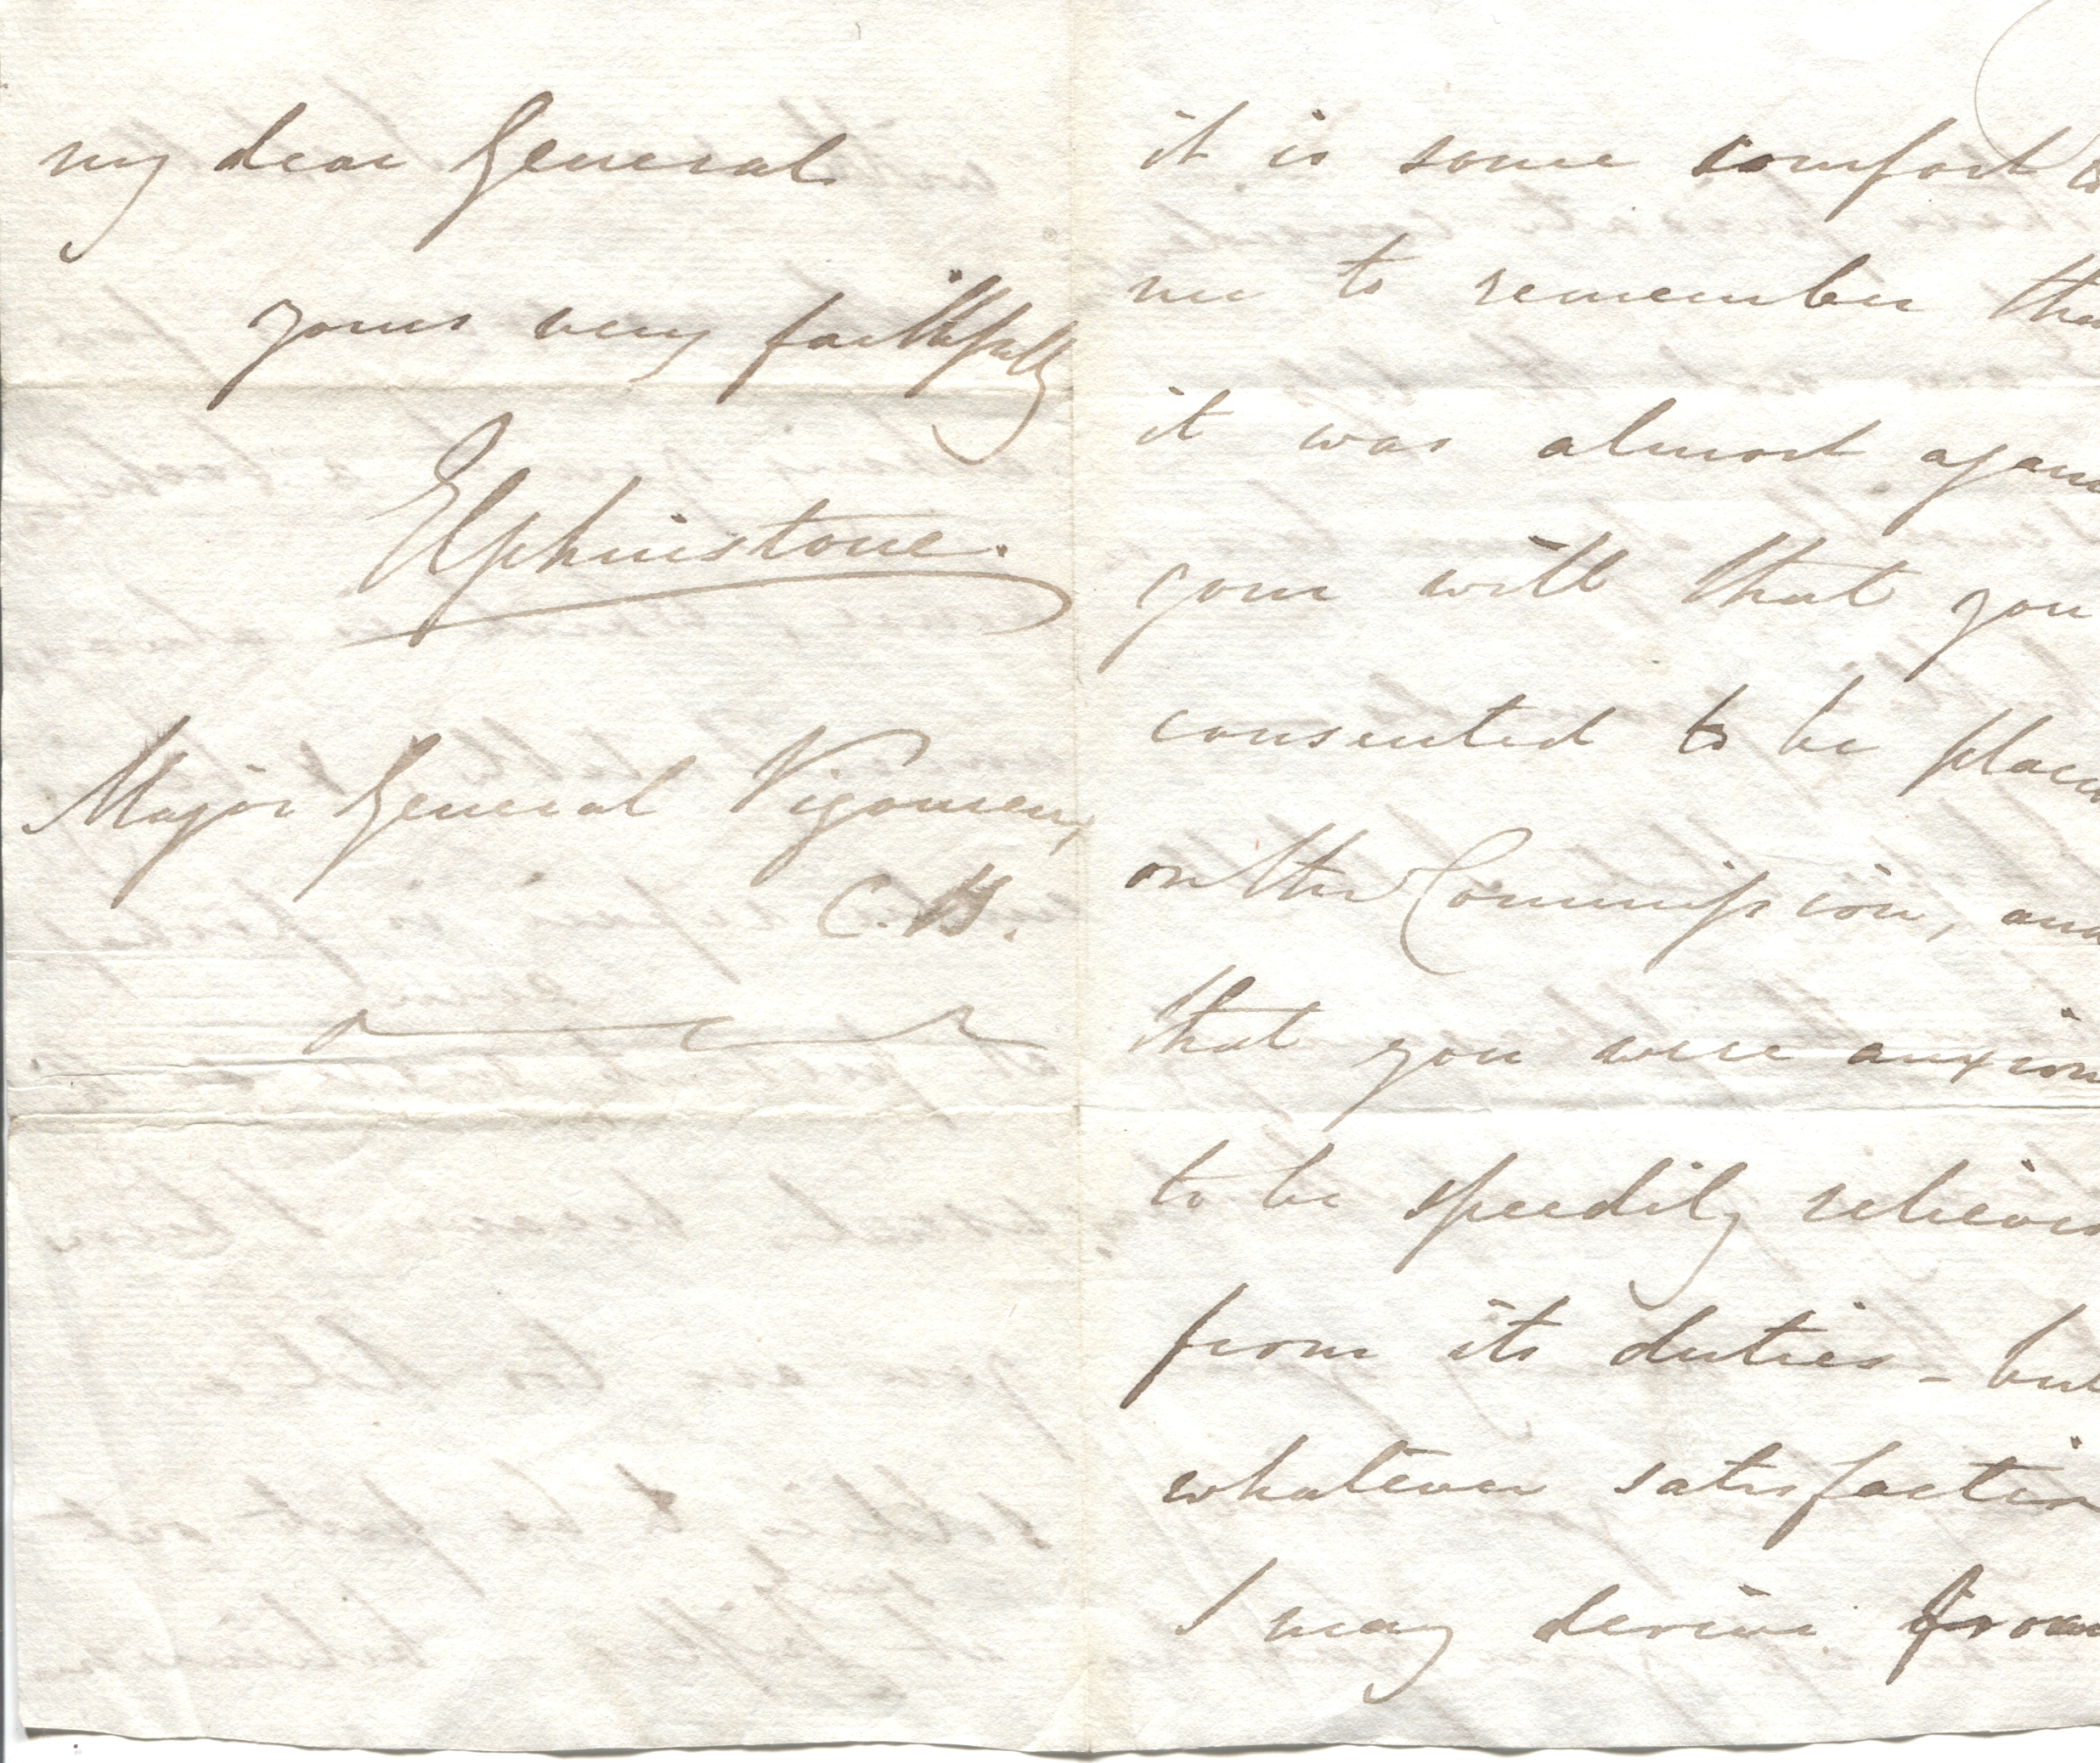 my dear General
yours very faithfully
Elphinstone.
Major General Vigoureux,
C.B.
it is some comfort to
me to remember tha
it was almost again
your will that you
consented to be place
on the Commission, and
that you were anxiou
to be speedily relieved
from its duties - but
whatever satisfaction
I may derive from